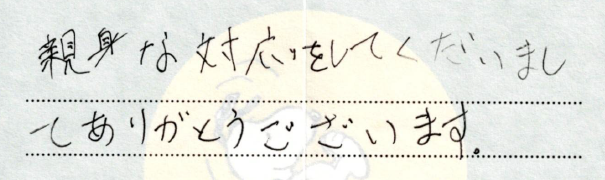 親身な対応をしてくださいまし
てありがとうございます。